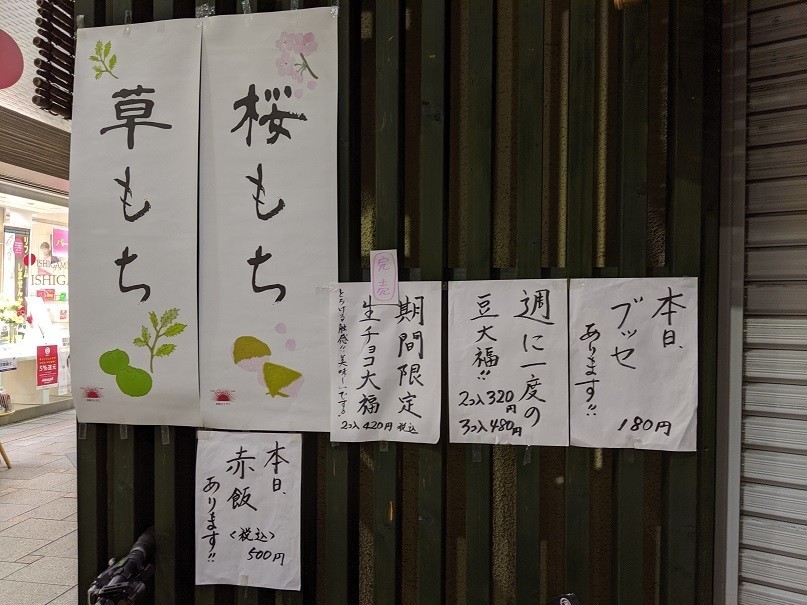 草もち
桜もち
完売
期間限定
生チョコ大福
とろける触感!!美味しいです♪
2コ入420円税込
週に一度の
豆大福!!
2コ入320円
3コ入480円
本日、
ブッセ
あります!!
180円
本日、
赤飯
<税込>
500円
あります!!
ISHIGAM
ISHIG